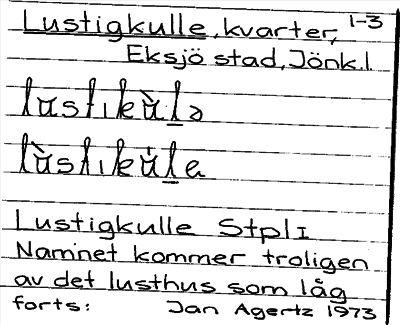 Lustigkulle, kvarter, 1-3
Eksjö stad, Jönk.l
lùstikù̱lə
lùstikù̱la
Lustigkulle StplI
Namnet kommer troligen
av det lusthus som låg
forts: Jan Agertz 1973